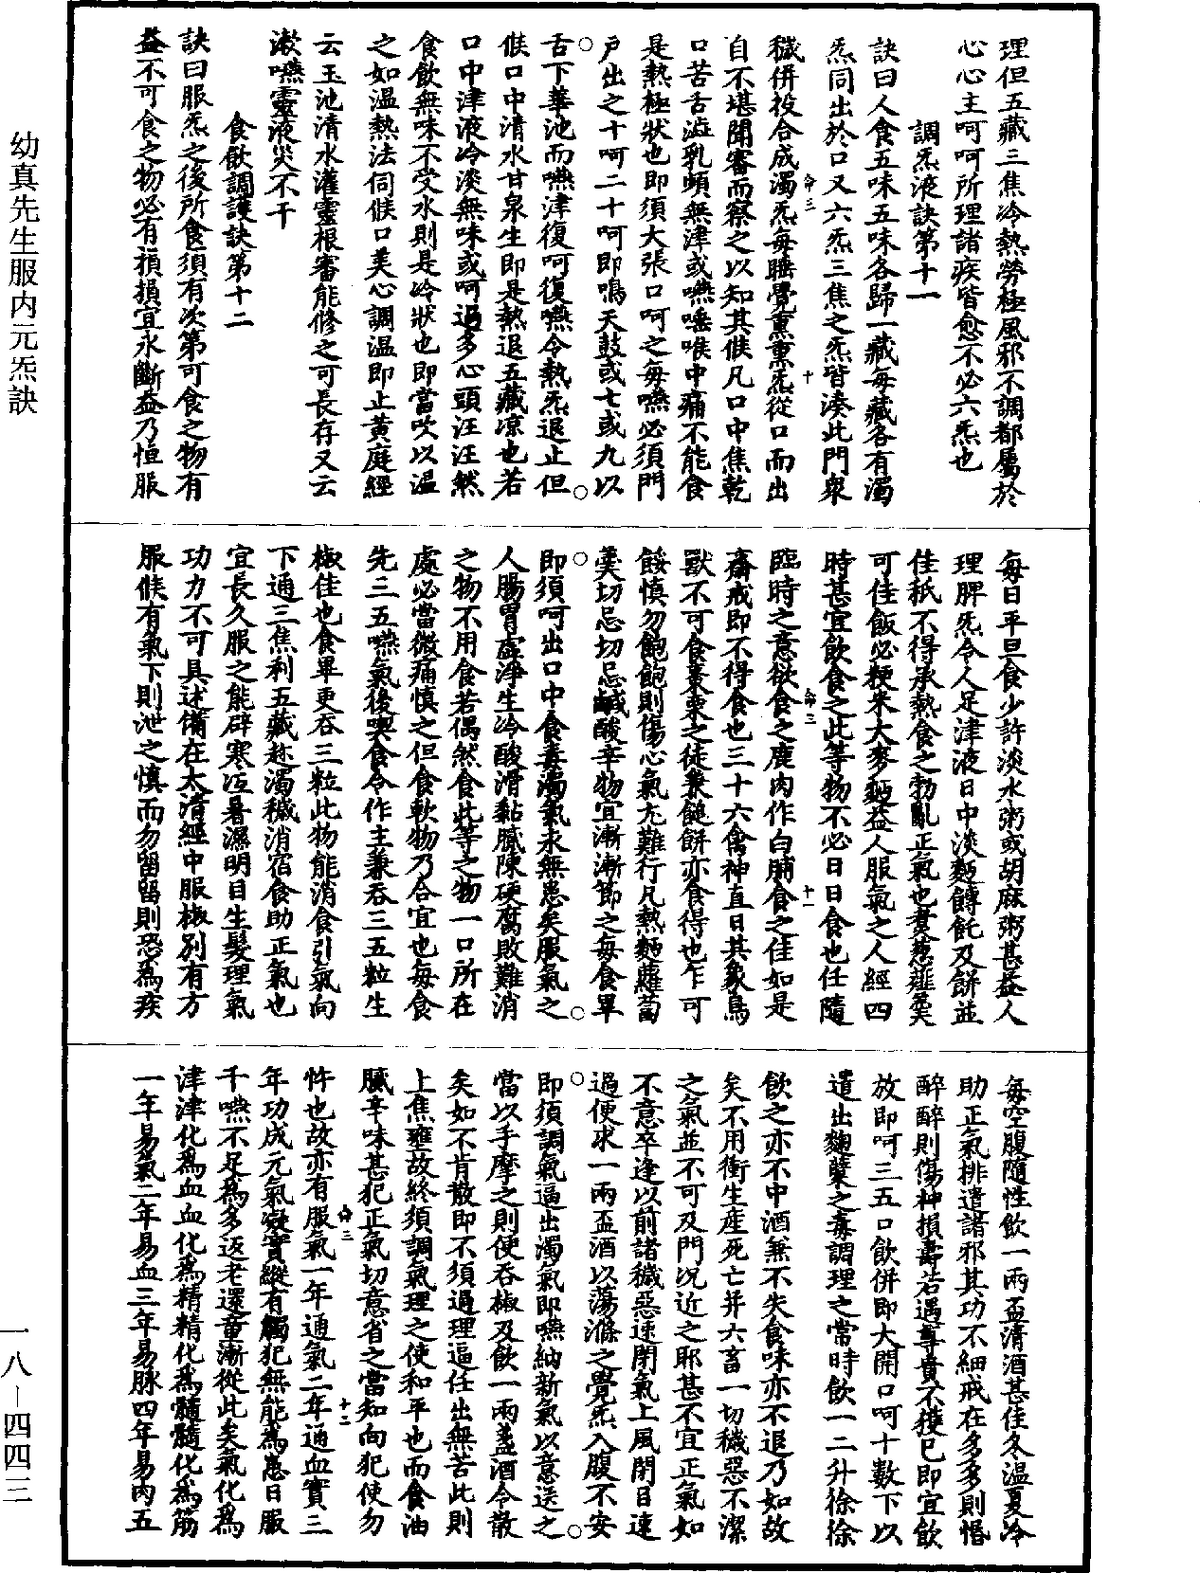 理但五藏三焦冷熱勞極風邪不調都屬於
心心主呵呵所理諸疾皆愈不必六炁也
調炁液訣第十一
訣曰人食五味五味各歸一藏每藏各有濁
炁同出於口又六炁三焦之炁皆湊此門衆
穢併投合成濁炁每睡覺熏熏炁從口而出
自不堪聞審而察之以知其候凡口中焦乾
口苦舌澁乳頰無津或嚥唾喉中痛不能食
是熱極狀也即須大張口呵之每嚥必須門
戶出之十呵二十呵即鳴天鼓或七或九以
舌下華池而嚥津復呵復嚥令熱炁退止但
候口中清水甘泉生即是熱退五藏凉也若
口中津液冷淡無味或呵過多心頭汪汪然
食飲無味不受水則是冷狀也即當吹以温
之如温熱法伺候口美心調温即止黃庭經
云玉池清水灌靈根審能修之可長存又云
漱嚥靈液災不干
食飲調護訣第十二
訣曰服炁之後所食須有次第可食之物有
益不可食之物必有損損宜永斷益乃恒服
每日平旦食少許淡水粥或胡麻粥甚益人
理脾炁令人足津液日中淡麵餺飥及餅並
佳秖不得承熱食之物亂正氣也煮葱薤羹
可佳飯必粳米大麥麵益人服氣之人經四
時甚宜飲食之此等物不必日日食也任隨
臨時之意欲食之鹿肉作白脯食之佳如是
齋戒即不得食也三十六禽神直日其象鳥
獸不可食棗栗之徒兼餬餅亦食得也乍可
餒慎勿飽飽則傷心氣尤難行凡熱麵蘿蔔
羹切忌切忌鹹酸辛物宜漸漸節之每食畢
即須呵出口中食毒濁氣永無患矣服氣之
人腸胃虛淨生冷酸滑黏膩陳硬腐敗難消
之物不用食若偶然食此等之物一口所在
處必當微痛慎之但食軟物乃合宜也每食
先三五嚥氣後喫食令作主兼吞三五粒生
椒佳也食畢更吞三粒此物能消食引氣向
下通三焦利五藏趂濁穢消宿食助正氣也
宜長久服之能辟寒冱暑濕明目生髮理氣
功力不可具述備在太清經中服椒別有方
服候有氣下則泄之慎而勿留留則恐為疾
每空腹隨性飲一兩盃清酒甚佳冬溫夏冷
助正氣排遣諸邪其功不細戒在多多則惛
醉醉則傷神損壽若遇尊貴不獲已即宜飲
放即呵三五口飲併即大開口呵十數下以
遣出麴蘖之毒調理之常時飲一二升徐徐
飲之亦不中酒兼不失食味亦不退乃如故
矣不用衝生産死亡并六畜一切穢惡不潔
之氣並不可及門況近之耶甚不宜正氣如
不意卒逢以前諸穢惡速閉氣上風閉目速
過便求一兩盃酒以蕩滌之覺炁入腹不安
即須調氣逼出濁氣即嚥納新氣以意送之
當以手摩之則便吞椒及飲一兩盞酒令散
矣如不肯散即不須過理逼任出無苦此則
上焦壅故終須調氣理之使和平也而食油
膩辛味甚犯正氣切意省之當知向犯使勿
忤也故亦有服氣一年通氣二年通血實三
年功成元氣凝實縱有觸犯無能為患日服
千嚥不足為多返老還童漸從此矣氣化為
津津化為血血化為精精化為髓髓化為筋
一年易氣二年易血三年易脉四年易肉五
幼真先生服内元炁訣
一八—四四三